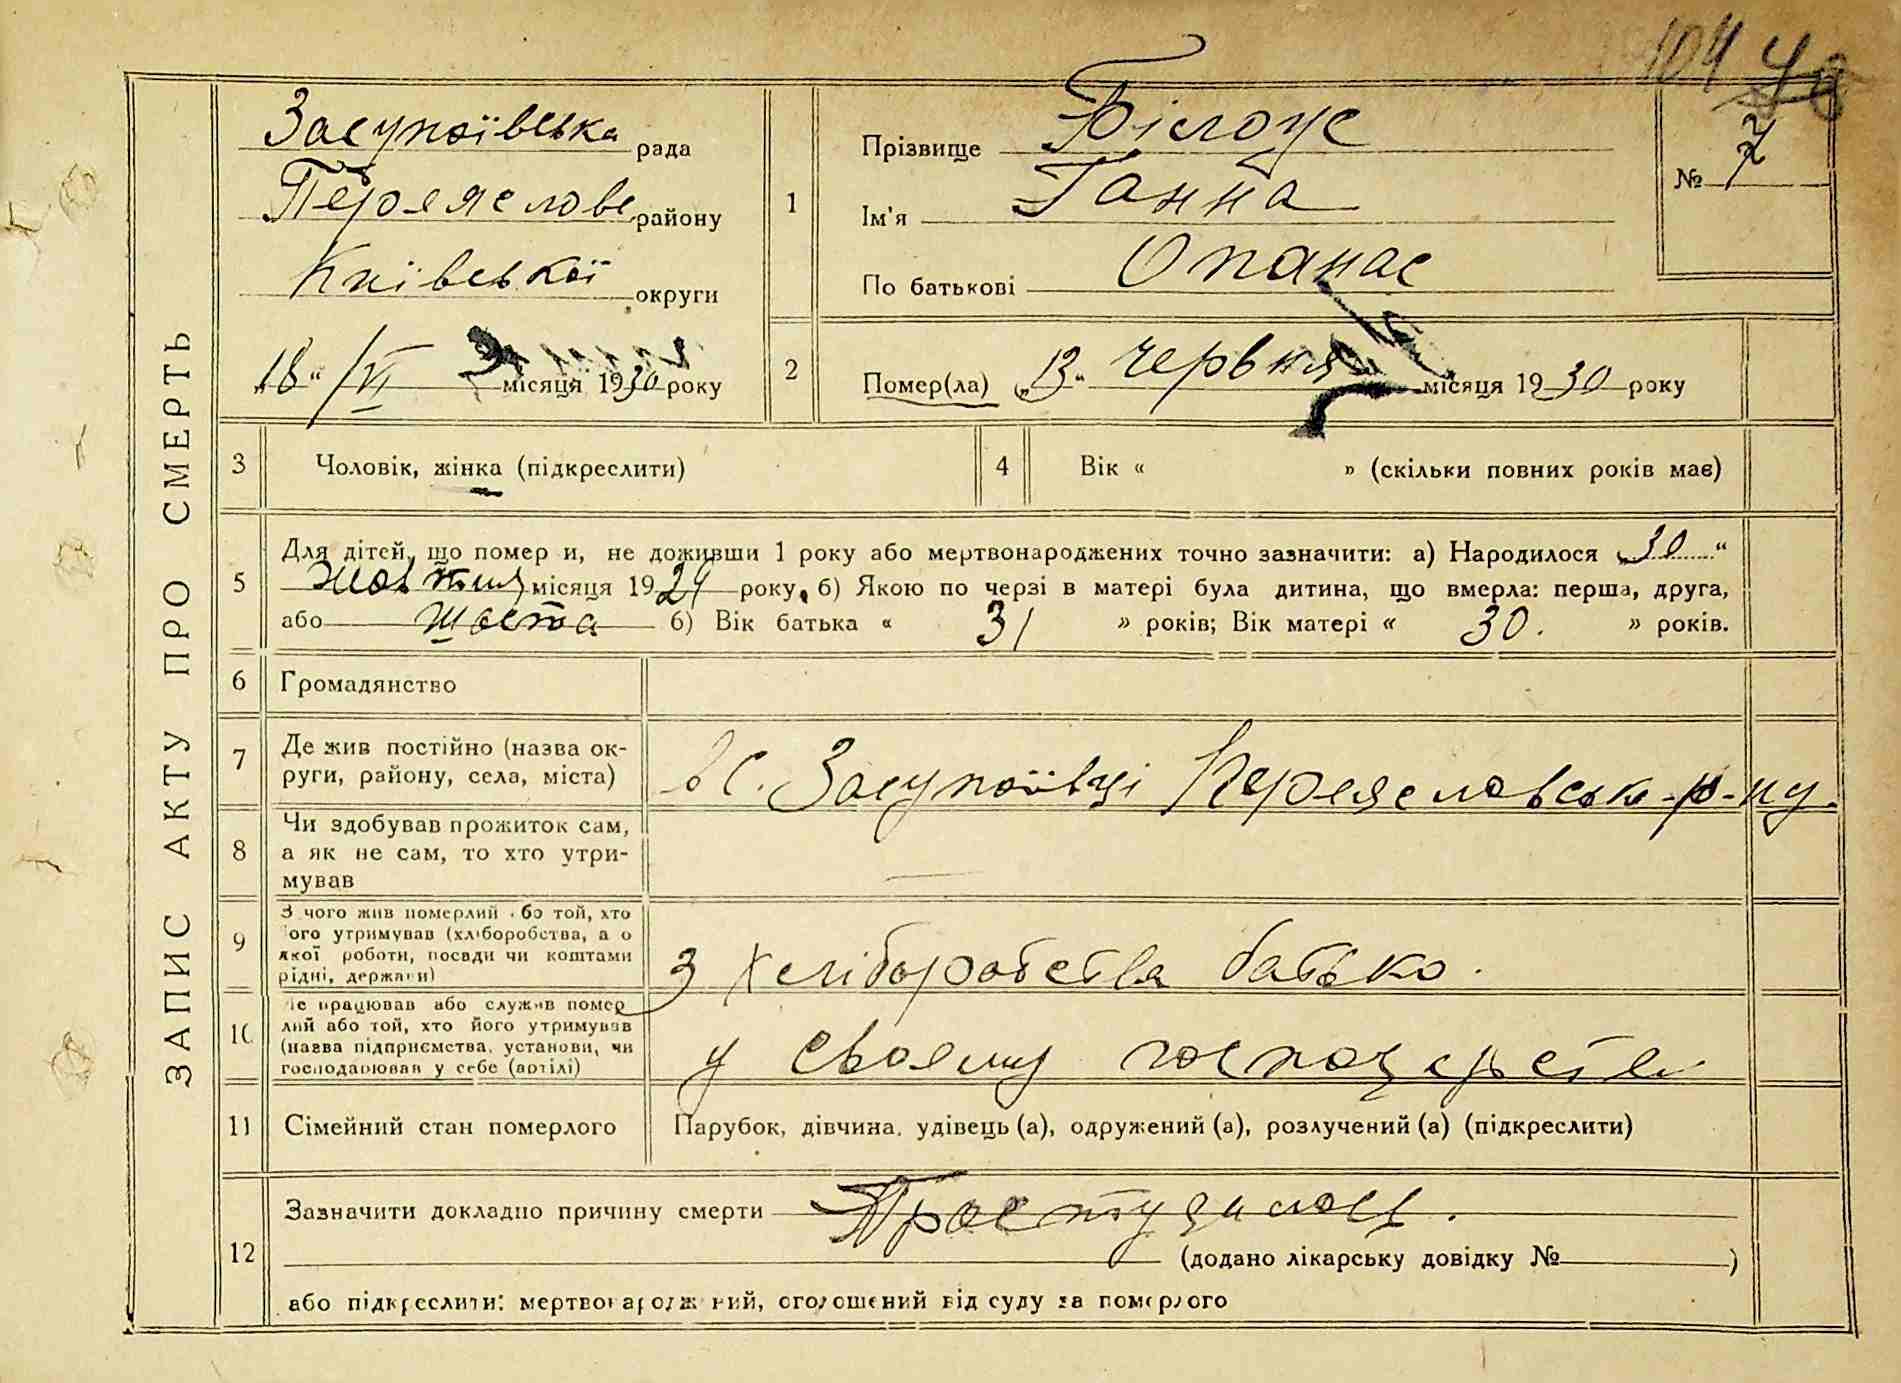 104
ЗАПИС АКТУ ПРО СМЕРТЬ
Засупоївська рада
Переяслове району
Київської округи
„18“ /VI місяця 1930 року
1
Прізвище Білоус
Ім'я Ганна
По батькові Опанас
№ 7
2
Помер(ла) „13“ червня місяця 1930 року
3 Чоловік, жінка (підкреслити)
4 Вік « » (скільки повних років має)
5
Для дітей, що помер и, не доживши 1 року або мертвонароджених точно зазначити: а) Народилося „30“
жовтня місяця 1929 року, б) Якою по черзі в матері була дитина, що вмерла: перша, друга,
або шоста б) Вік батька « 31 » років; Вік матері « 30. » років.
6 Громадянство
7 Де жив постійно (назва ок-
руги, району, села, міста)
в с. Засупоївці Переяславськ. р-ну.
8 Чи здобував прожиток сам,
а як не сам, то хто утри-
мував
9 З чого жив померлий бо той, хто
ого утримував (хліборобства, а о
якої роботи, посади чи коштами
рідні, держави)
З хліборобства батько.
10 Де працював або служив помер
лий або той, хто його утримував
(назва підприємства, установи, чи
господарював у себе (артілі)
у свояму господарстві
11 Сімейний стан померлого
Парубок, дівчина, удівець (а), одружений (а), розлучений (а) (підкреслити)
12
Зазначити докладно причину смерти Простудилось.
(додано лікарську довідку № )
або підкреслити: мертвонароджений, оголошений від суду за померлого